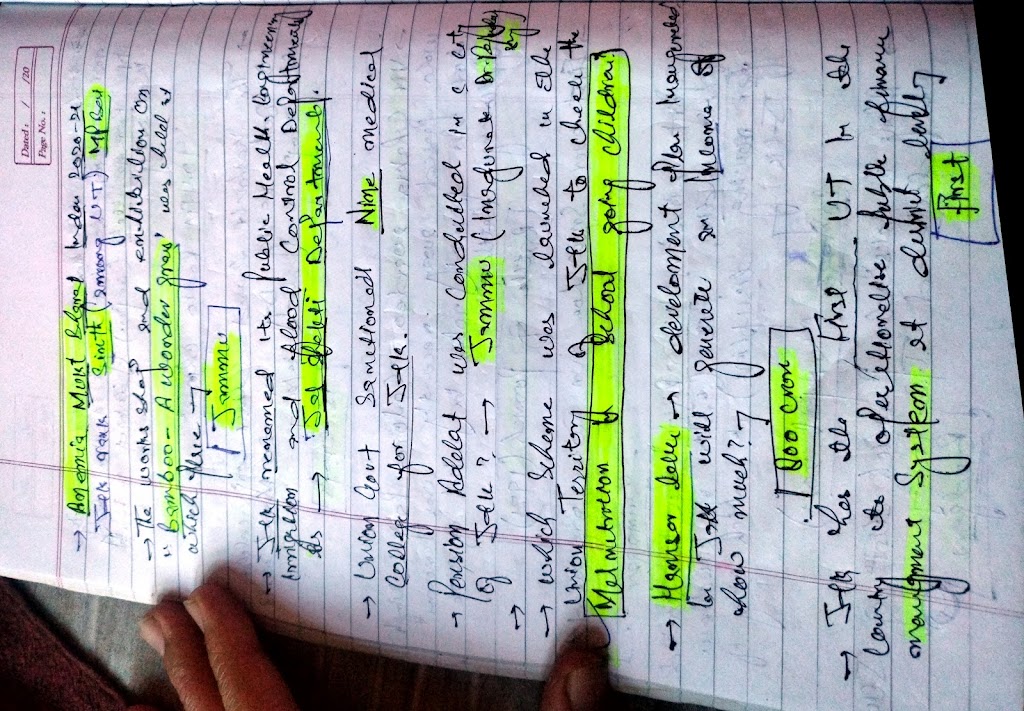 Dated: / /20
Page No.:
→ Anemia Mukt Bharat Index 2020-21
J&K rank Sixth (among UT) MP Ist
→ The workshop and exhibition on
"Bamboo - A wonder grass" was held at
which place →
Jammu
→ J&K renamed its Public Health Engineering
irrigation and flood Control Department
as → Jal Shakti Department.
→ Union Govt Sanctioned Nine medical
College for J&K.
→ Pension Adalat was Conducted in s city
of J&K? → Jammu (Inaugurate Dr
→
→ which Scheme was launched in the
Union Territory of J&K to check the
Malnutrition of School going children?
→ Mansar Lake → development plan
in J&K will generate an Income of
how much? →
800 crore
→ J&K has the First UT in the
Country to operationalise public finance
management System at district level
First